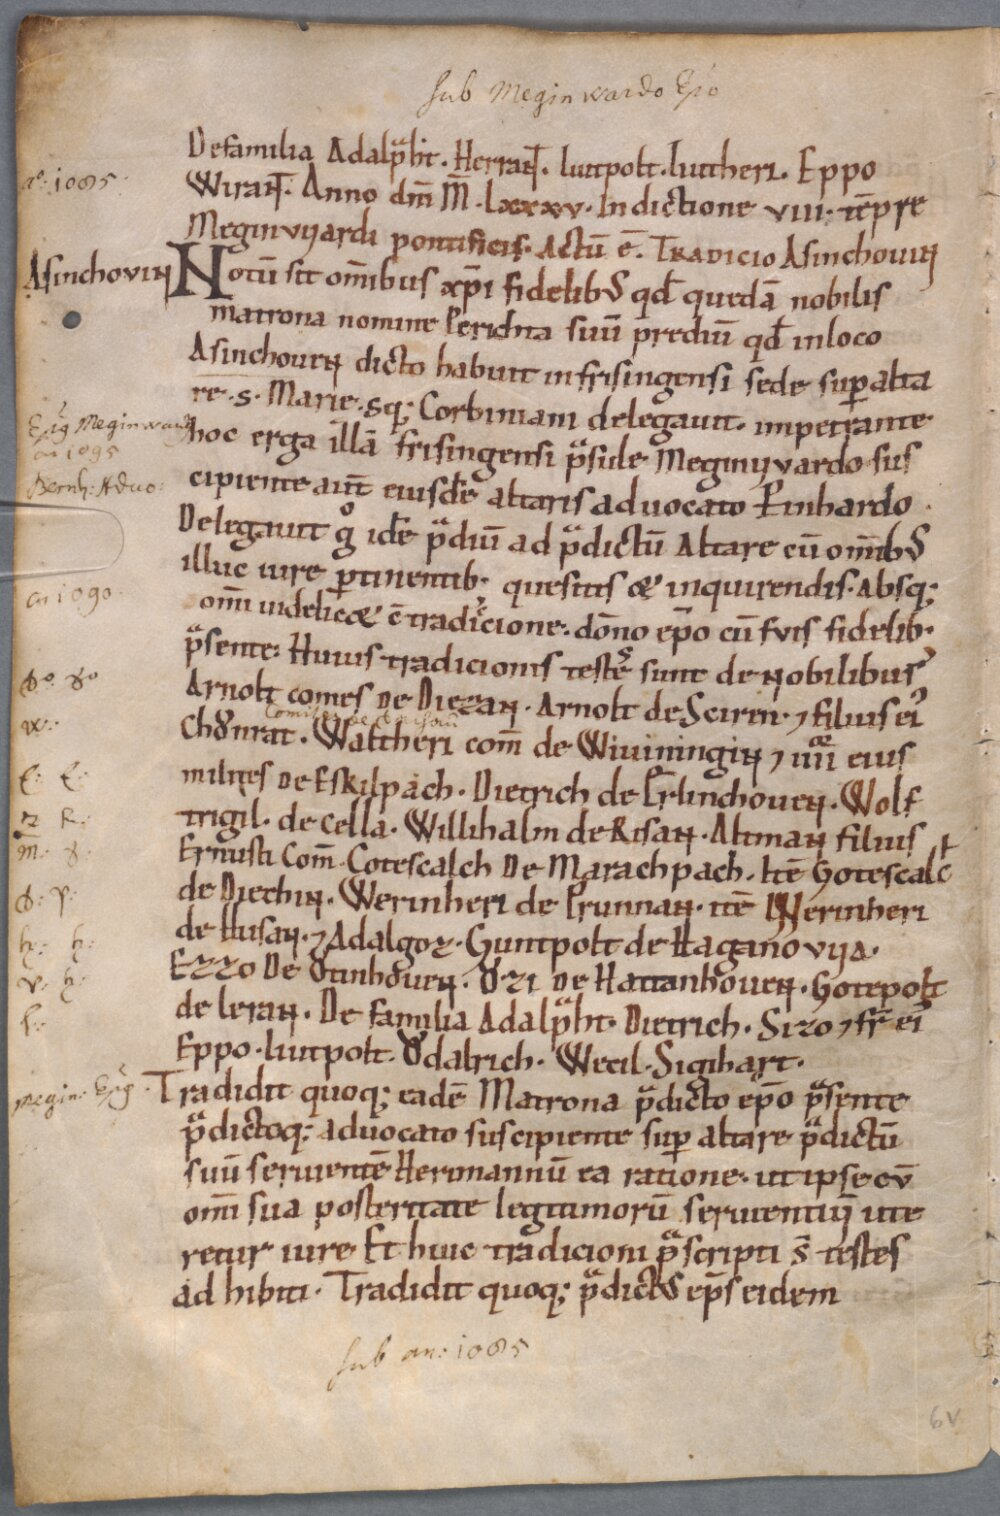 sub Meginwardo Ep̄o
De familia Adalp̄ht. Herrant. liutpolt. liutheri. Eppo
aº: 1085
Wirant. Anno dm̄ M̄. Lxxxv. Indictione viii. tēpre
Meginvvardi pontificis. Actū ē. Tradicio Asinchovin
Asinchovin
Notū sit om̄ibus xp̄i fidelib; qd̄ quedā nobilis
matrona nomine Perichta suū prediū qđ inloco
Asinchouen dicto habuit in frisingensi sede sup alta
re .s. Marie. sq; Corbiniani delegauit. impetrante
Ep̄g Meginward
hoc erga illā frisingensi p̄side Meginvvardo sus
an 1095
cipiente aut̄ eiusdē altaris aduocato Pinhardo.
Bernh: Advo:
Delegauit gº idē p̄diū ad p̄dictū Altare cū om̄ib;
illuc iure ptinentib; quesitis & inquirendis. Absq;
an 1090
om̄i uidelic& ētradic̄ione. dōno ep̄o cū suis fidelib;
p̄sente. Huius tradicionis testes sunt de nobilibus
Arnolt comes De Diezan. Arnolt de Sciren. ⁊ filius ei
Chōnrat. Waltheri com̄ de Wiuiningin ⁊ eius
milites De Eskilpach. Dietrich de Prlinchouen. Wolf
trigil. de cella. Willihalm de Risan. Altman filius
Ernusti Com̄. Cotescalch De Marachpach. Itē Gotescalc
de Diethin. Werinheri de Prunnan. itē Werinheri
de Husan. ⁊ Adalgoz. Guntpolt de Haganovva.
Ezzo De Otinhouen. Ozi De Hattanhouen. Gotepolt
de leran. De familia Adalp̄ht. Dietrich. Sizo ⁊ fr̄ ei
Eppo. liutpolt. Ödalrich. Wecil. Sigihart.
Megin: Ep̄g
Tradidit quoq; eadē Matrona p̄dicto ep̄o p̄sente
p̄dictoq; aduocato suscipiente sup altare p̄dictū
suū seruientē Herimannū ea ratione. ut ipse cū
om̄i sua posteritate legitimorū seruientiū ute
retur iure Et huic tradicioni p̄scripti s̄ testes
ad hibiti. Tradidit quoq; p̄dict; ep̄s eidem
sub an: 1085
6v